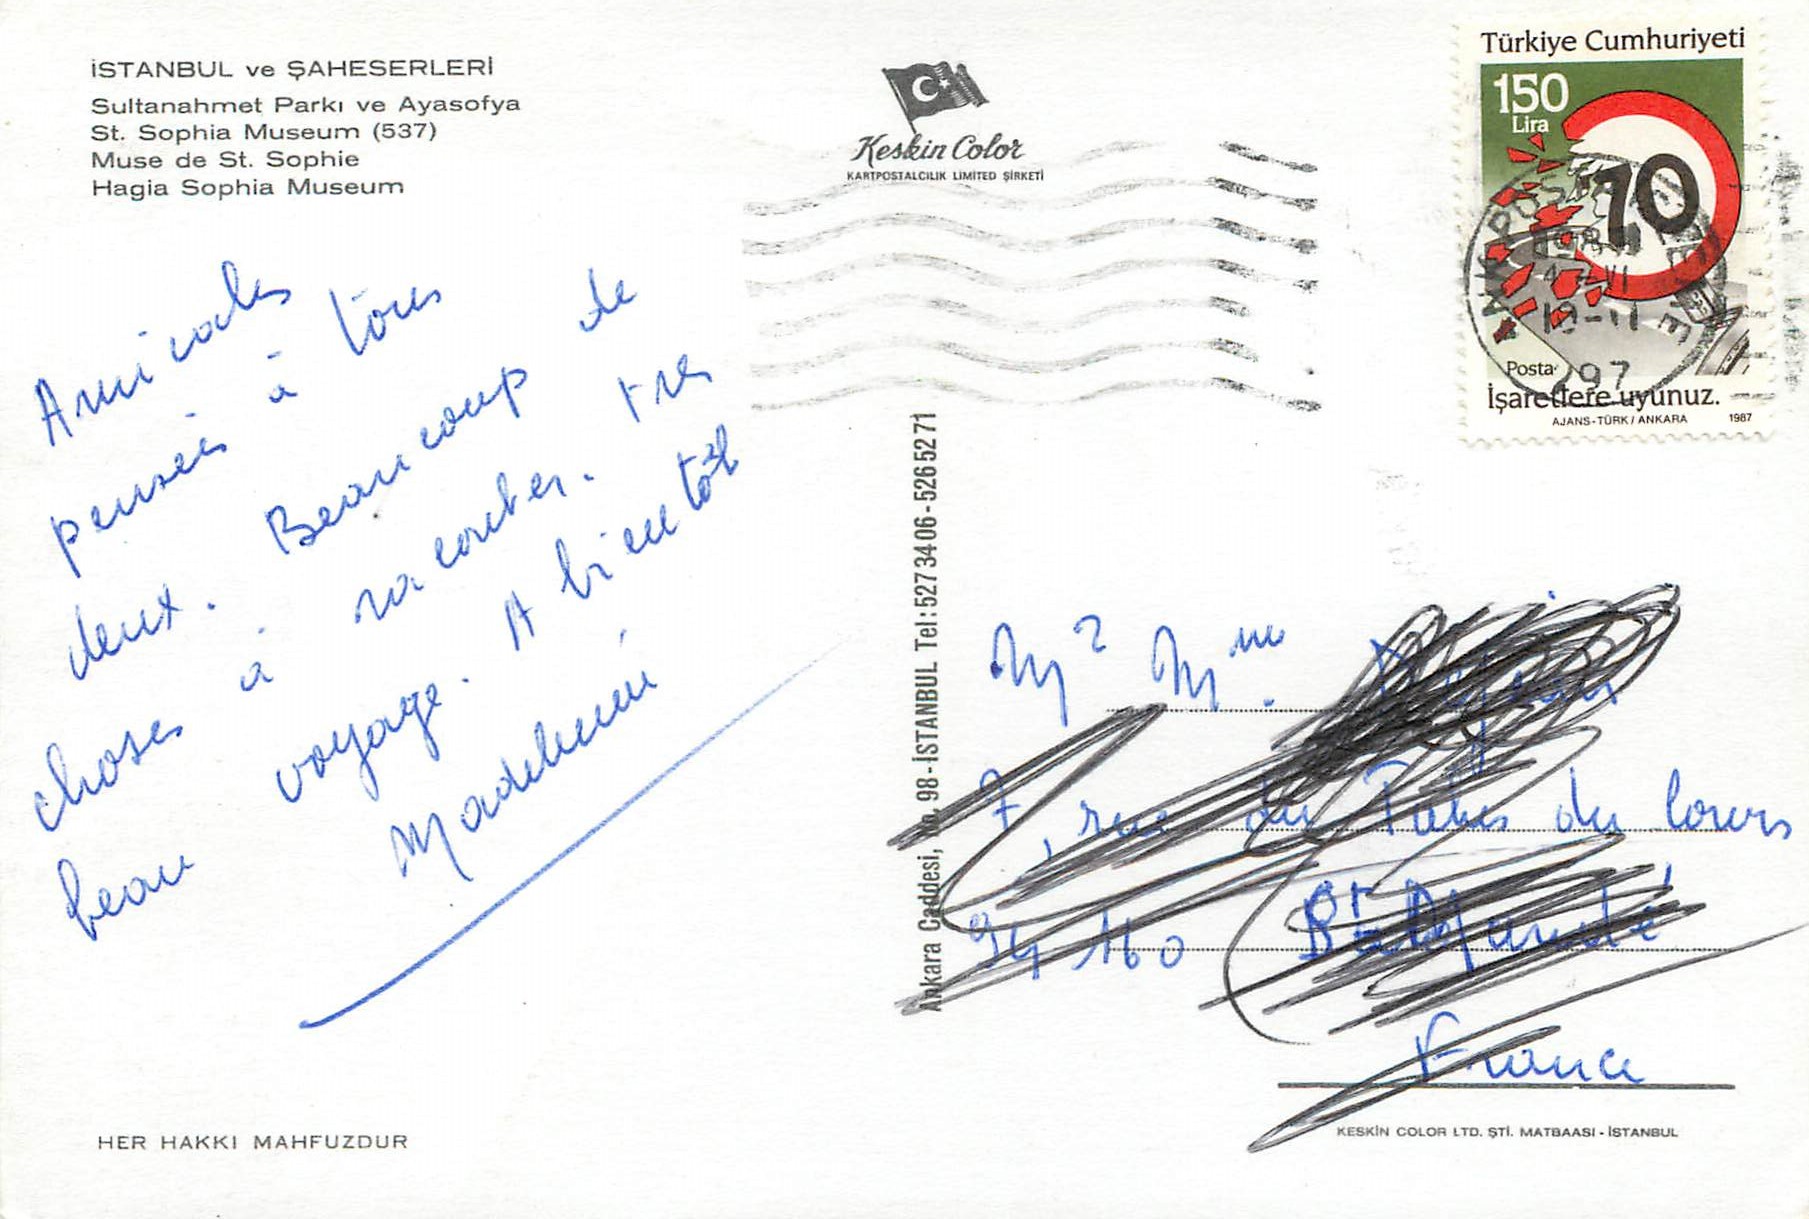 İSTANBUL ve ŞAHESERLERİ
Sultanahmet Parkı ve Ayasofya
St. Sophia Museum (537)
Muse de St. Sophie
Hagia Sophia Museum
Keskin Color
KARTPOSTALCILIK LIMITED ŞİRKETİ
Türkiye Cumhuriyeti
150
Lira
70
Posta
İşaretlere uyunuz.
AJANS-TÜRK / ANKARA 1987
19-11
97
Amicales
pensées à tous
deux. Beaucoup de
choses à raconter. très
beau voyage. A bientôt
Madeleine
Ankara Caddesi, No. 98 - İSTANBUL Tel: 5273406 - 5265271
M. Mme
7, rue du du cours
94 160 St Mandé
France
HER HAKKI MAHFUZDUR
KESKİN COLOR LTD. ŞTİ. MATBAASI - İSTANBUL